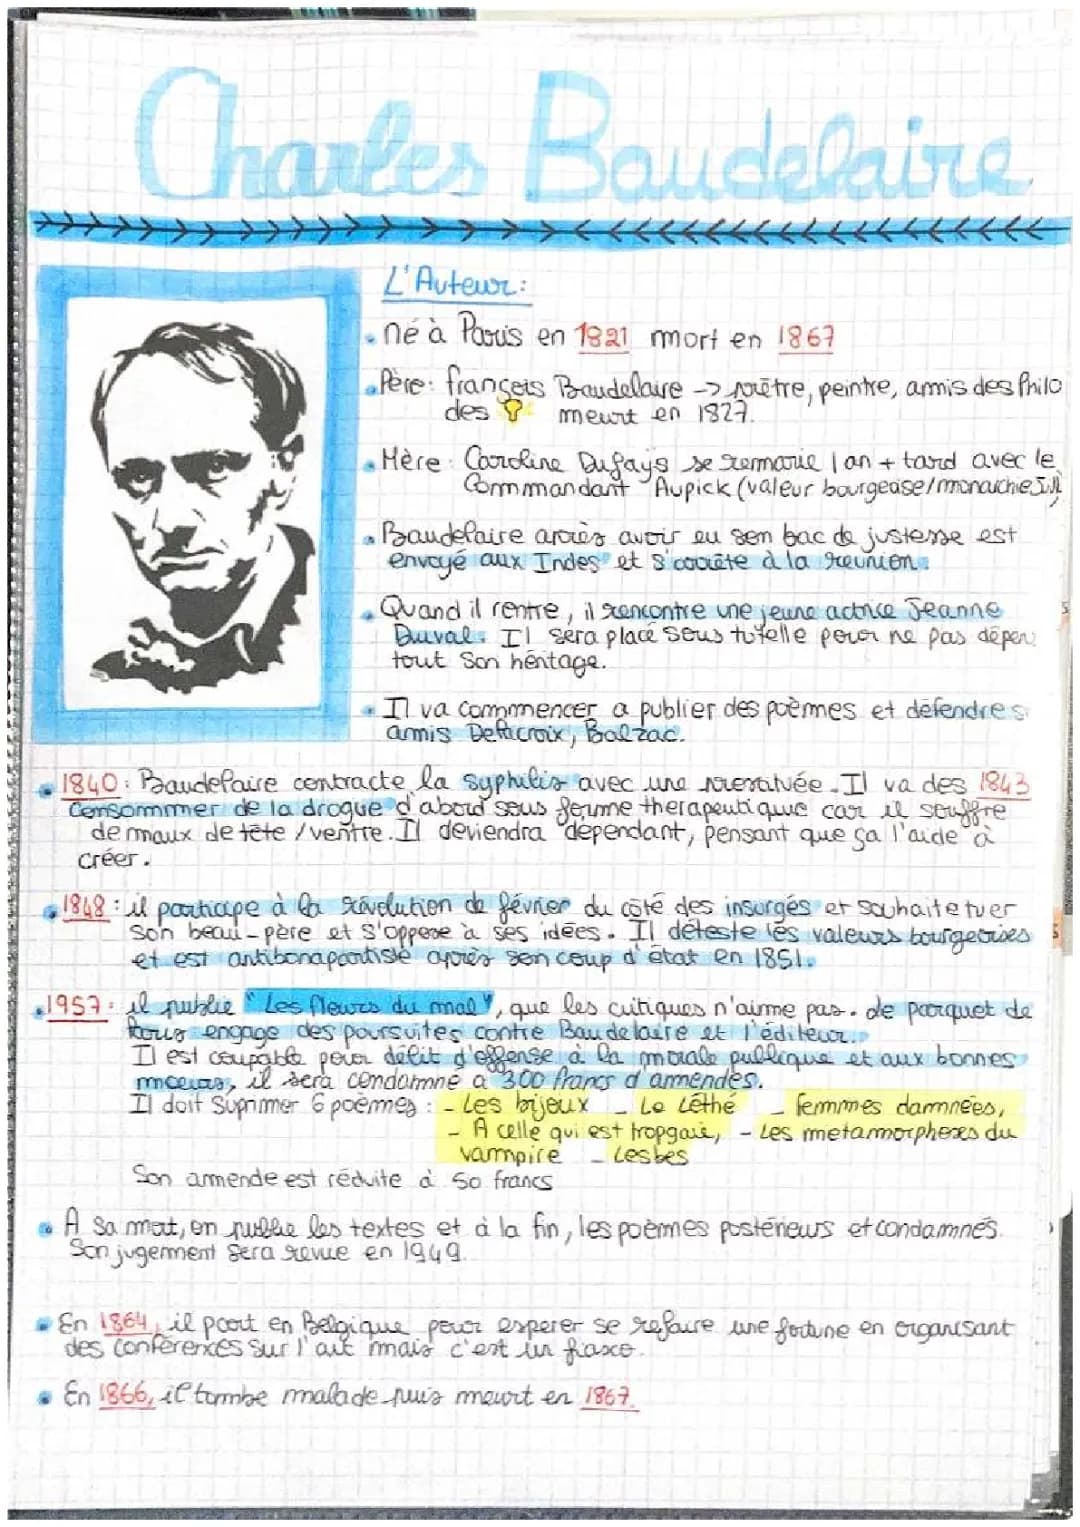 Charles Baudelaire
L'Auteur:
né à Paris en 1821 mort en 1867
Père: françois Baudelaire -> prêtre, peintre, amis des Philo
des meurt en 1827.
Mère: Caroline Dufays se remarie 1 an + tard avec le
Commandant Aupick (valeur bourgeoise/monarchie
Baudelaire après avoir eu son bac de justesse est
envoyé aux Indes et s'arrête à la réunion.
Quand il rentre, il rencontre une jeune actrice Jeanne
Duval. Il sera placé sous tutelle pour ne pas dépen
tout son héritage.
Il va commencer a publier des poèmes et défendre s
amis Delacroix, Balzac.
1840: Baudelaire contracte la syphilis avec une prostituée. Il va des 1843
consommer de la drogue d'abord sous forme therapeutique car il souffre
de maux de tête /ventre. Il deviendra dépendant, pensant que ça l'aide à
créer.
1848: il participe à la révolution de février du côté des insurgés et souhaite tuer
son beau-père et s'oppose à ses idées. Il déteste les valeurs bourgeoises
et est antibonapartiste après son coup d'état en 1851.
1957: il publie "Les fleurs du mal", que les critiques n'aime pas. Le parquet de
Paris engage des poursuites contre Baudelaire et l'éditeur.
Il est coupable pour délit d'offense à la morale publique et aux bonnes
moeurs, il sera condamné a 300 francs d'amendes.
Il doit suprimer 6 poèmes: - Les bijoux - Le Léthé - femmes damnées,
- A celle qui est trop gaie, - Les metamorphoses du
vampire - Lesbos
Son amende est réduite à 50 francs
À sa mort, on publie les textes et à la fin, les poèmes postérieurs et condamnés.
Son jugement sera revue en 1949.
En 1864, il part en Belgique pour esperer se refaire une fortune en organisant
des conférences sur l'art mais c'est un fiasco.
En 1866, il tombe malade puis meurt en 1867.